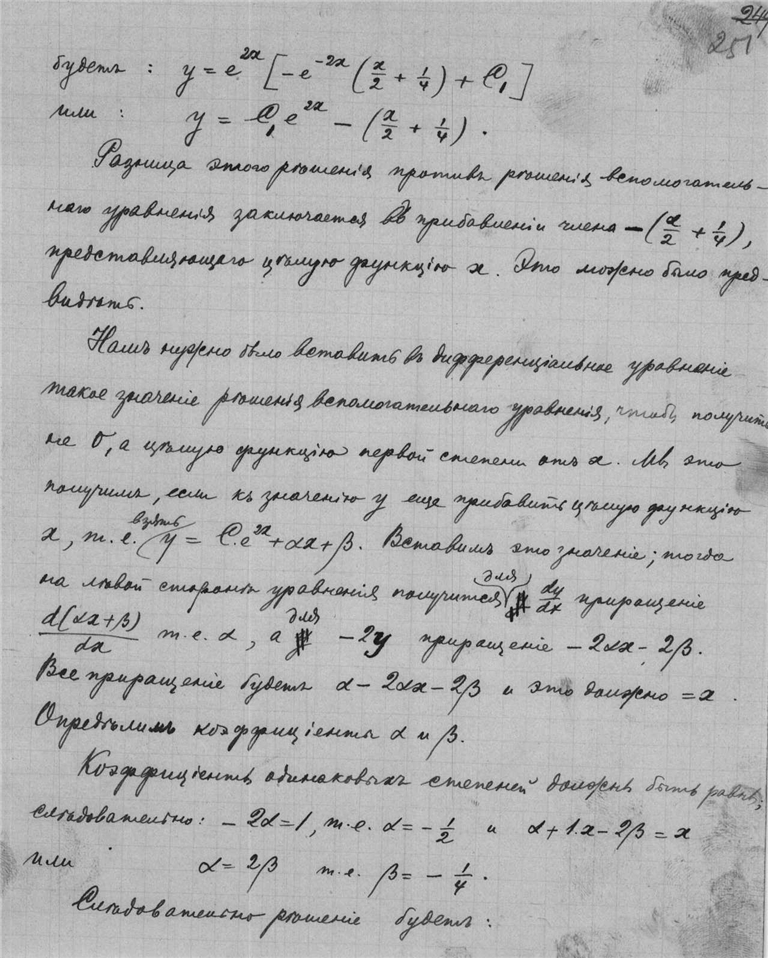 244
251
будетъ : y = e^{2x} [ -e^{-2x} ( x/2 + 1/4 ) + C₁ ]
или : y = C₁ e^{2x} - ( x/2 + 1/4 ) .
Разница этого рѣшенія противъ рѣшенія вспомогатель-
наго уравненія заключается въ прибавленіи члена - ( x/2 + 1/4 ),
представляющаго цѣлую функцію x. Это можно было пред-
видѣть.
Намъ нужно было вставить въ дифференціальное уравненіе
такое значеніе рѣшенія вспомогательнаго уравненія, чтобъ получить
не 0, а цѣлую функцію первой степени отъ x. Мы это
получимъ, если къ значенію y еще прибавить цѣлую функцію
x, т.е. взять y = C.e^{2x} + αx + β. Вставимъ это значеніе; тогда
на лѣвой сторонѣ уравненія получится для dy/dx приращеніе
d(αx+β)/dx т.е. α, а для -2y приращеніе -2αx - 2β.
Все приращеніе будетъ α - 2αx - 2β и это должно = x.
Опредѣлимъ коэффиціенты α и β.
Коэффиціенты одинаковыхъ степеней должны быть равны;
слѣдовательно: -2α = 1, т.е. α = -1/2 и α + 1.x - 2β = x
или α = 2β т.е. β = - 1/4 .
Слѣдовательно рѣшеніе будетъ :